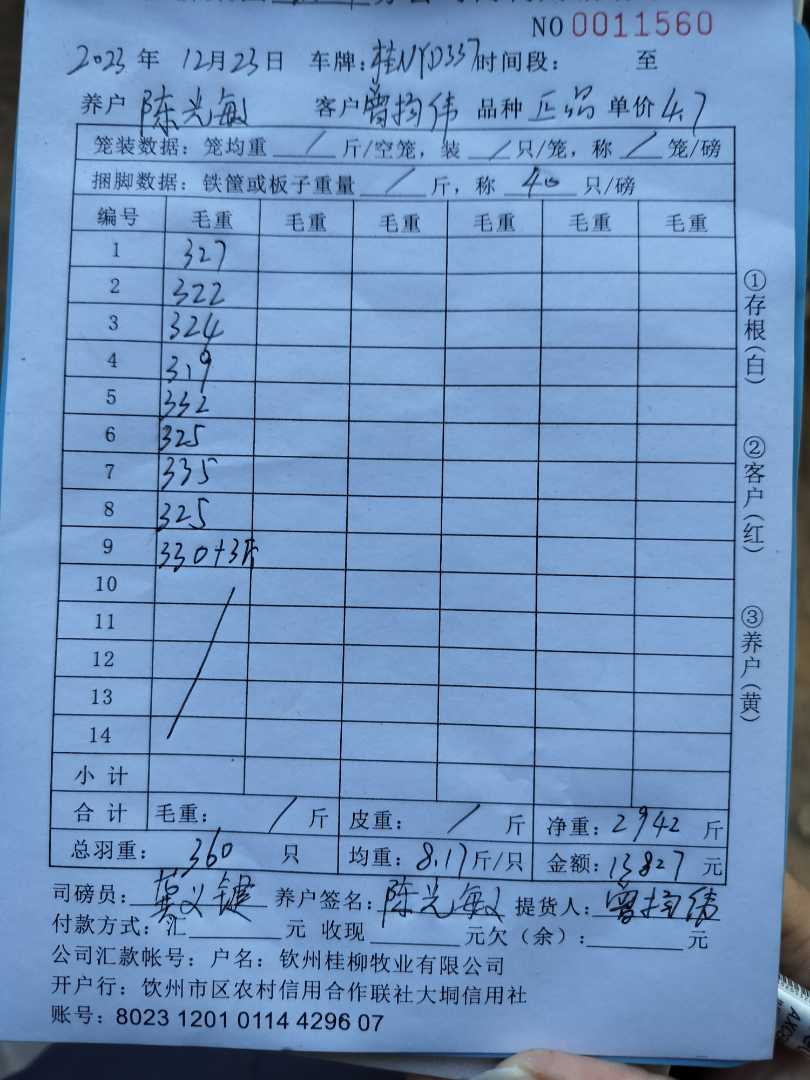 NO 0011560
2023 年 12月23日 车牌:桂NYD337 时间段: 至
养户 陈光敏 客户 曾均伟 品种 正品 单价 4.7
笼装数据: 笼均重 / 斤/空笼, 装 / 只/笼, 称 / 笼/磅
捆脚数据: 铁筐或板子重量 / 斤, 称 40 只/磅
编号 毛重 毛重 毛重 毛重 毛重 毛重
1 327
2 322
3 324
4 319
5 332
6 325
7 335
8 325
9 330+3斤
10
11
12
13
14
小计
合计 毛重: / 斤 皮重: / 斤 净重: 2942 斤
总羽重: 360 只 均重: 8.17 斤/只 金额: 13827 元
司磅员: 龚义键 养户签名: 陈光敏 提货人: 曾均伟
付款方式: 汇 元 收现 元欠(余): 元
公司汇款帐号: 户名: 钦州桂柳牧业有限公司
开户行: 钦州市区农村信用合作联社大垌信用社
账号: 8023 1201 0114 4296 07
①存根(白)
②客户(红)
③养户(黄)